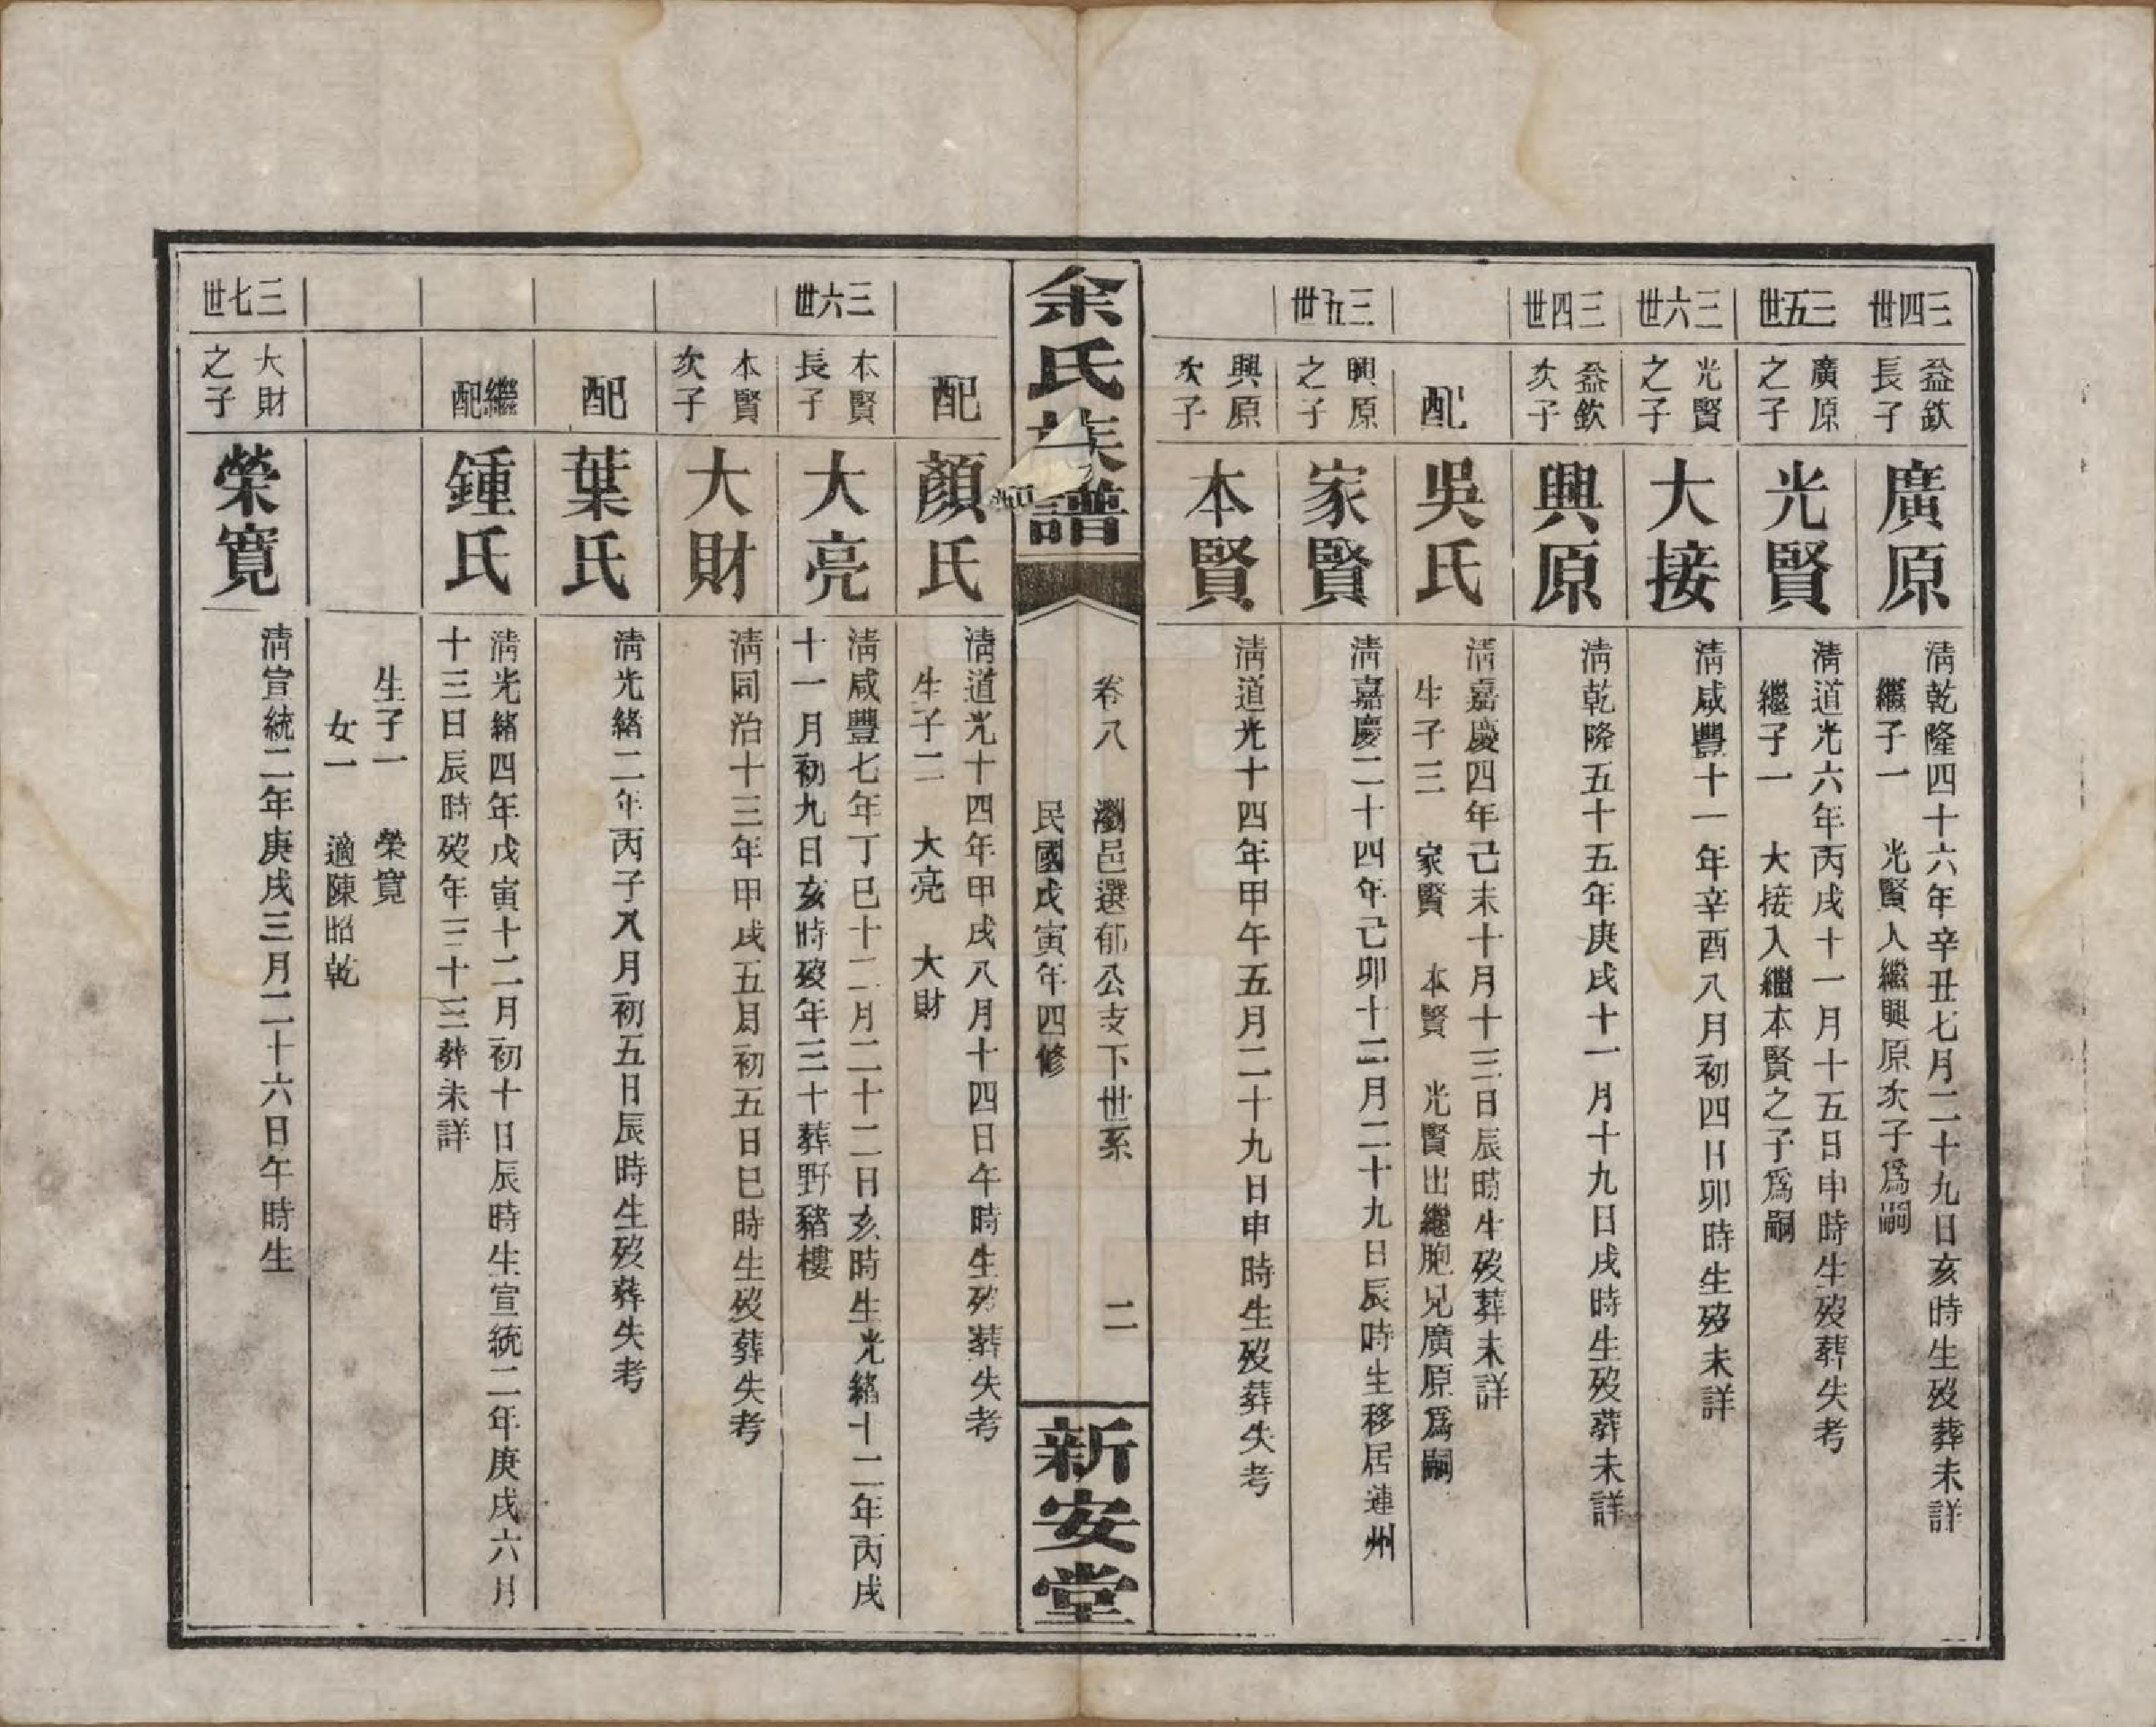 三四世
益欽長子
廣原
清乾隆四十六年辛丑七月二十九日亥時生歿葬未詳
繼子一　光賢入繼興原次子爲嗣
三五世
廣原之子
光賢
清道光六年丙戌十一月十五日申時生歿葬失考
繼子一　大接入繼本賢之子爲嗣
三六世
光賢之子
大接
清咸豐十一年辛酉八月初四日卯時生歿未詳
三四世
益欽次子
興原
清乾隆五十五年庚戌十一月十九日戌時生歿葬未詳
配
吳氏
清嘉慶四年己未十月十三日辰時生歿葬未詳
生子三　家賢　本賢　光賢出繼胞兄廣原爲嗣
三五世
興原之子
家賢
清嘉慶二十四年己卯十二月二十九日辰時生移居連州
興原次子
本賢
清道光十四年甲午五月二十九日申時生歿葬失考
余氏族譜
卷八　瀏邑選郁公支下世系　二
民國戊寅年四修
新安堂
配
顏氏
清道光十四年甲戌八月十四日午時生歿葬失考
生子二　大亮　大財
三六世
本賢長子
大亮
清咸豐七年丁巳十二月二十二日亥時生光緒十二年丙戌
十一月初九日亥時歿年三十葬野豬樓
本賢次子
大財
清同治十三年甲戌五月初五日巳時生歿葬失考
配
葉氏
清光緒二年丙子八月初五日辰時生歿葬失考
繼配
鍾氏
清光緒四年戊寅十二月初十日辰時生宣統二年庚戌六月
十三日辰時歿年三十三葬未詳
生子一　榮寬
女一　適陳昭乾
三七世
大財之子
榮寬
清宣統二年庚戌三月二十六日午時生